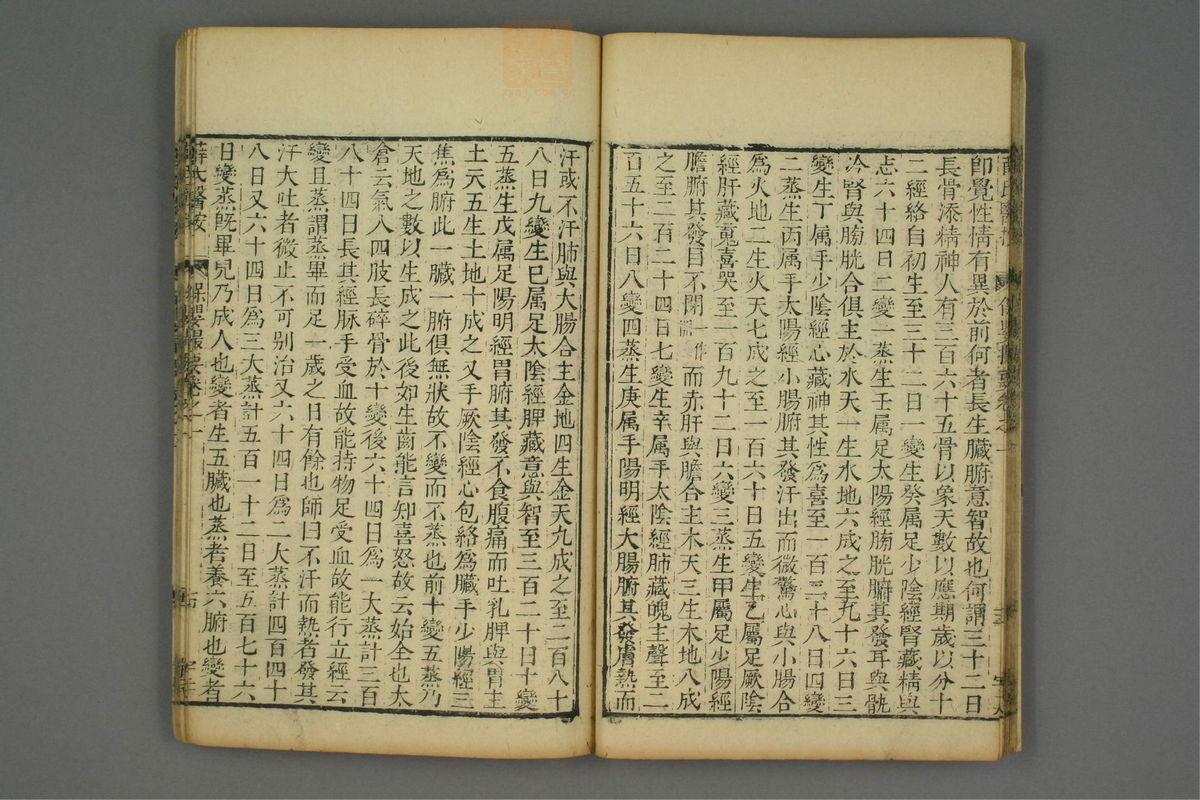 即覺性情有異於前何者長生臟腑意智故也何謂三十二日
長骨添精神人有三百六十五骨以象天數以應期歲以分十
二經絡自初生至三十二日一變生癸属足少陰經腎藏精與
志六十四日二變一蒸生壬属足太陽經膀胱腑其發耳與骩
冷腎與膀胱合俱主於水天一生水地六成之至九十六日三
變生丁属手少陰經心藏神其性爲喜至一百二十八日四變
二蒸生丙属手太陽經小腸腑其發汗出而微驚心與小腸合
爲火地二生火天七成之至一百六十日五變生乙屬足厥陰
經肝藏䰟喜哭至一百九十二日六變三蒸生甲屬足少陽經
膽腑其發目不閉一作而赤肝與膽合主木天三生木地八成
之至二百二十四日七變生辛属手太陰經肺藏魄主聲至二
百五十六日八變四蒸生庚属手陽明經大腸腑其發膚熱而
汗或不汗肺與大腸合主金地四生金天九成之至二百八十
八日九變生巳属足太陰經脾藏意與智至三百二十日十變
五蒸生戊属足陽明經胃腑其發不食腹痛而吐乳脾與胃主
土天五生土地十成之又手厥陰經心包絡爲臟手少陽經三
焦爲腑此一臟一腑俱無狀故不變而不蒸也前十變五蒸乃
天地之數以生成之此後如生齒能言知喜怒故云始全也太
倉云氣入四肢長碎骨於十變後六十四日爲一大蒸計三百
八十四日長其經脉手受血故能持物足受血故能行立經云
變且蒸謂蒸畢而足一歲之日有餘也師曰不汗而熱者發其
汗大吐者微止不可别治又六十四日爲二大蒸計四百四十
八日又六十四日爲三大蒸計五百一十二日至五百七十六
日變蒸旣畢兒乃成人也變者生五臟也蒸者養六腑也變者
薛氏醫按 保嬰撮要卷之一